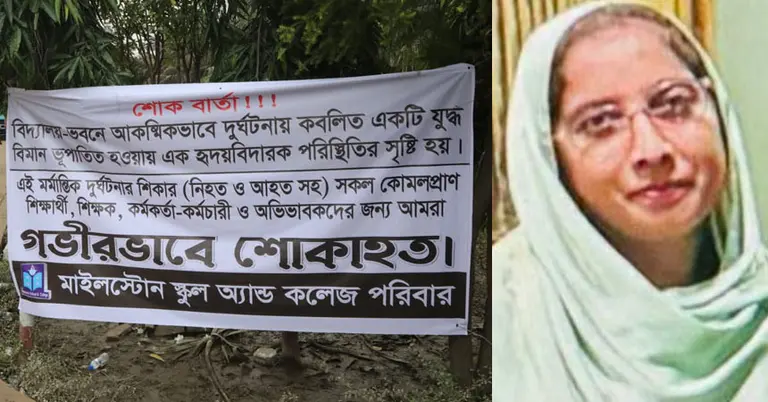 শোক বার্তা!!!
বিদ্যালয়-ভবনে আকস্মিকভাবে দুর্ঘটনায় কবলিত একটি যুদ্ধ
বিমান ভূপাতিত হওয়ায় এক হৃদয়বিদারক পরিস্থিতির সৃষ্টি হয়।
এই মর্মান্তিক দুর্ঘটনার শিকার (নিহত ও আহত সহ) সকল কোমলপ্রাণ
শিক্ষার্থী, শিক্ষক, কর্মকর্তা-কর্মচারী ও অভিভাবকদের জন্য আমরা
গভীরভাবে শোকাহত।
মাইলস্টোন স্কুল অ্যান্ড কলেজ পরিবার